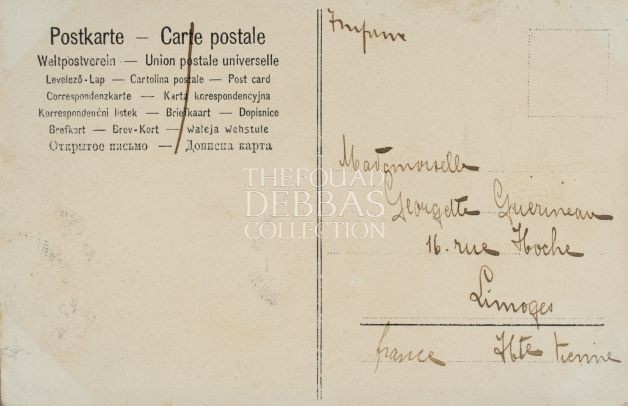 Postkarte — Carte postale
Weltpostverein — Union postale universelle
Levelező-Lap — Cartolina postale — Post card
Correspondenzkarte — Karta korespondencyjna
Korrespondenční lístek — Briefkaart — Dopisnice
Brefkort — Brev-Kort — Waleja Wehstule
Открытое письмо — Дописна карта
Mademoiselle
Georgette Guerineau
16. rue Hoche
Limoges
france Hte Vienne
THE FOUAD
DEBBAS
COLLECTION